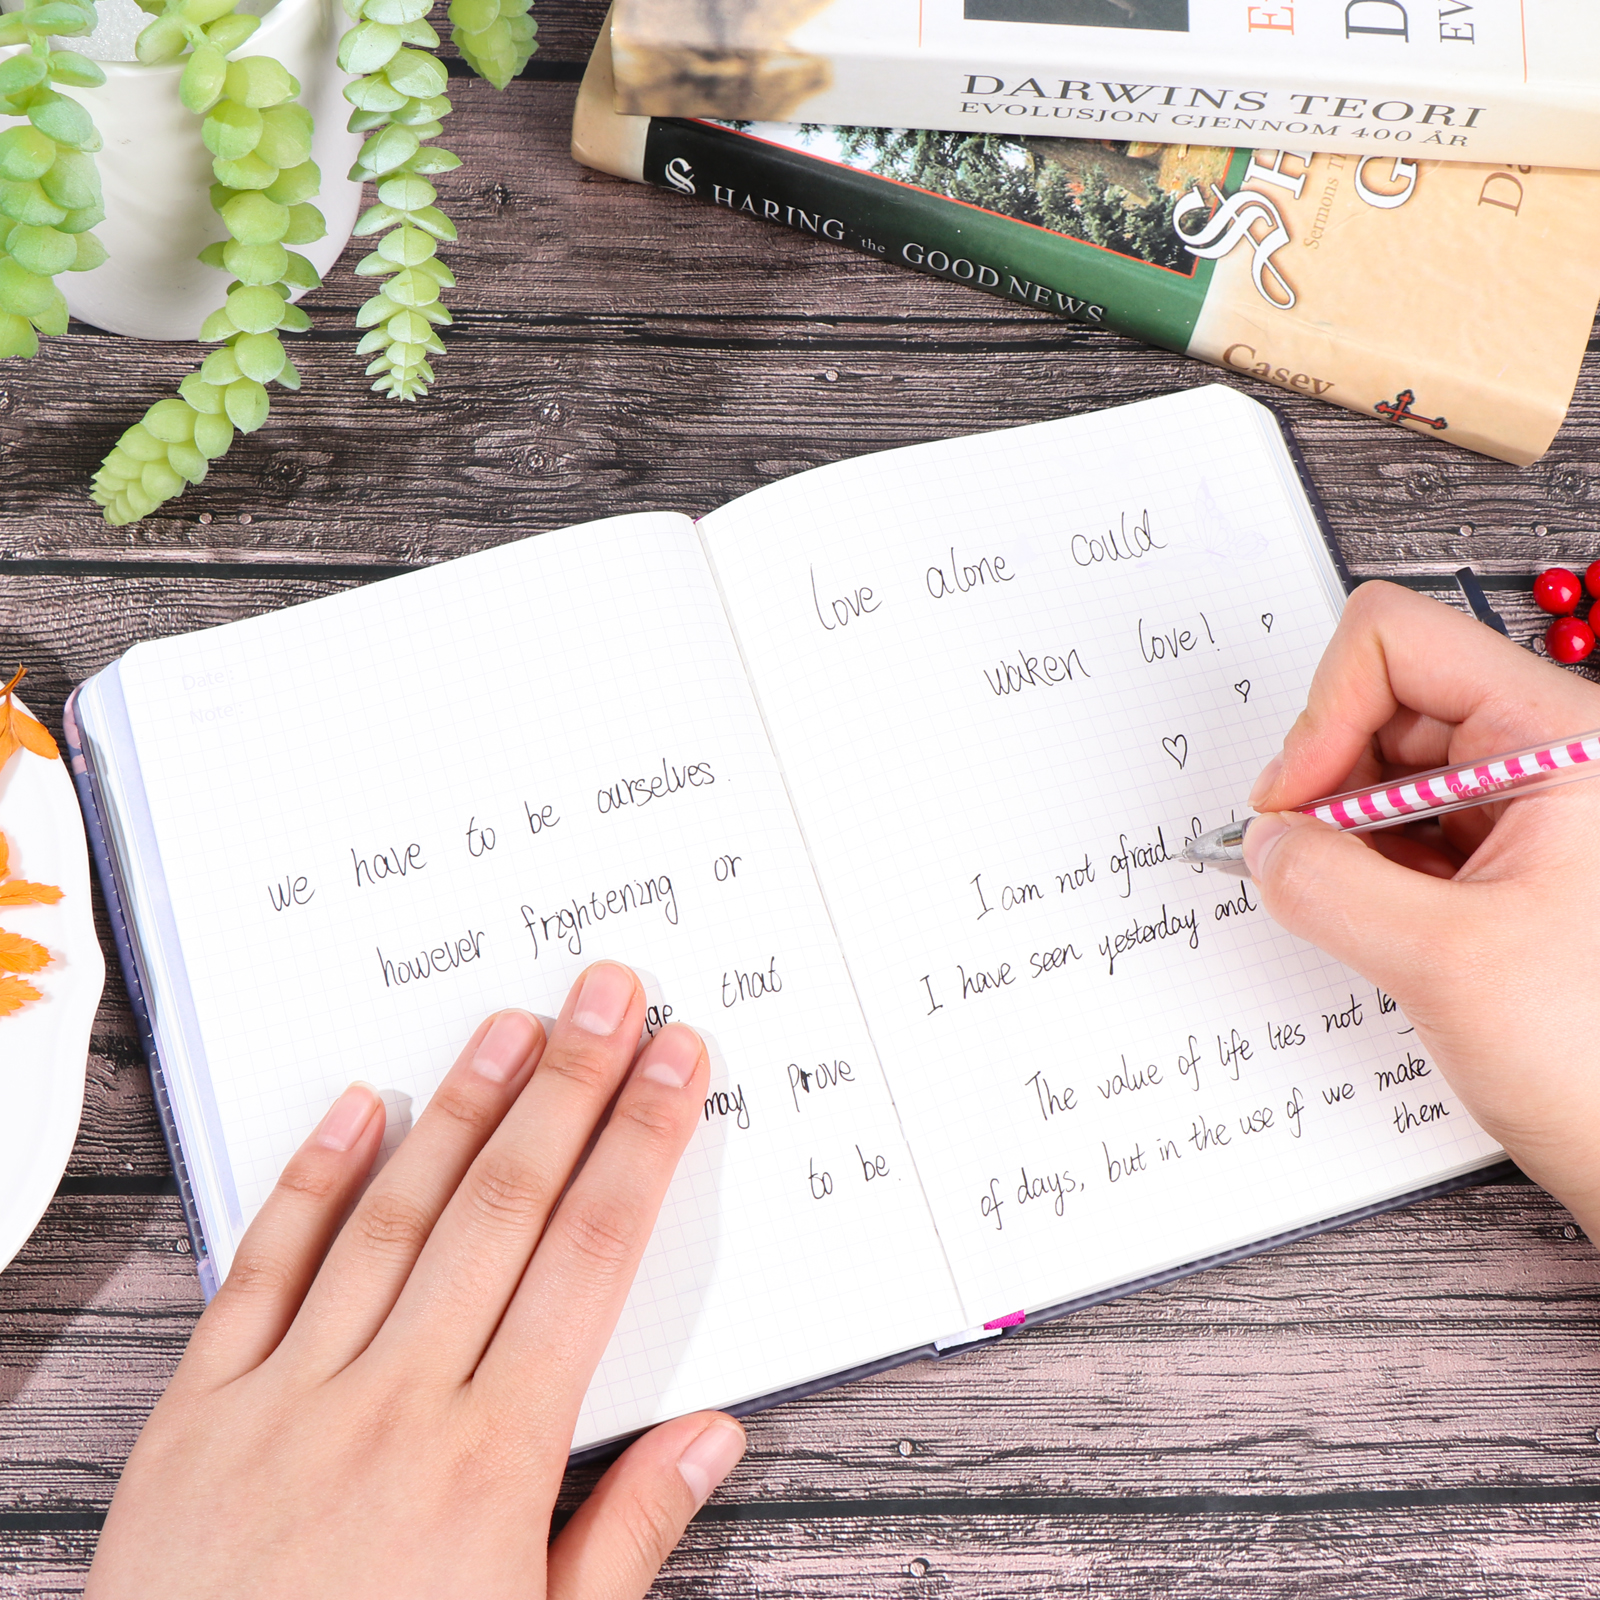 DARWINS TEORI
EVOLUSJON GJENNOM 400 ÅR
SHARING the GOOD NEWS
Sermons
Casey
Date:
Note:
we have to be ourselves.
however frightening or
that
may prove
to be.
love alone could
waken love!
I am not afraid of
I have seen yesterday and
The value of life lies not
of days, but in the use of we make
them